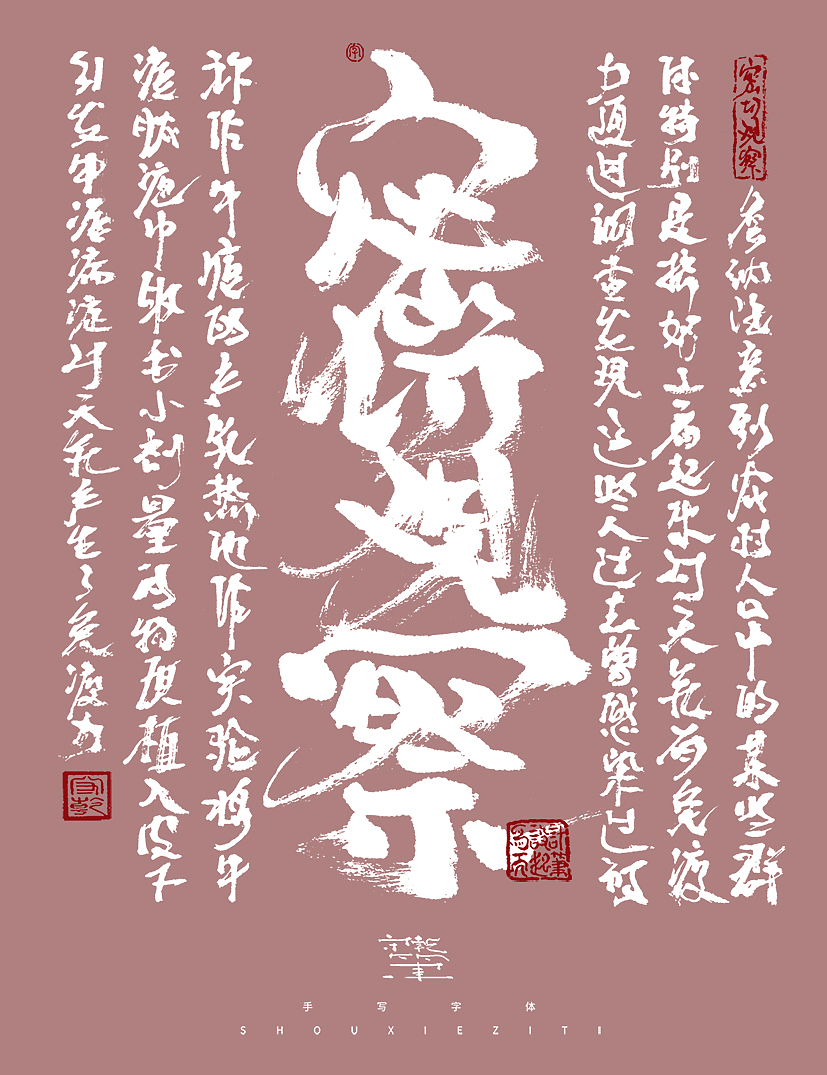 密切观察
詹纳注意到农村人口中的某些群
体特别是挤奶工看起来对天花有免疫
力通过调查发现这些人过去曾感染过被
密切观察
称作牛痘的热他作实验将牛
痘脓疱中取出小剂量的物质植入皮下
引发牛痘病症对天花产生了免疫力
手写字体
SHOUXIEZITI